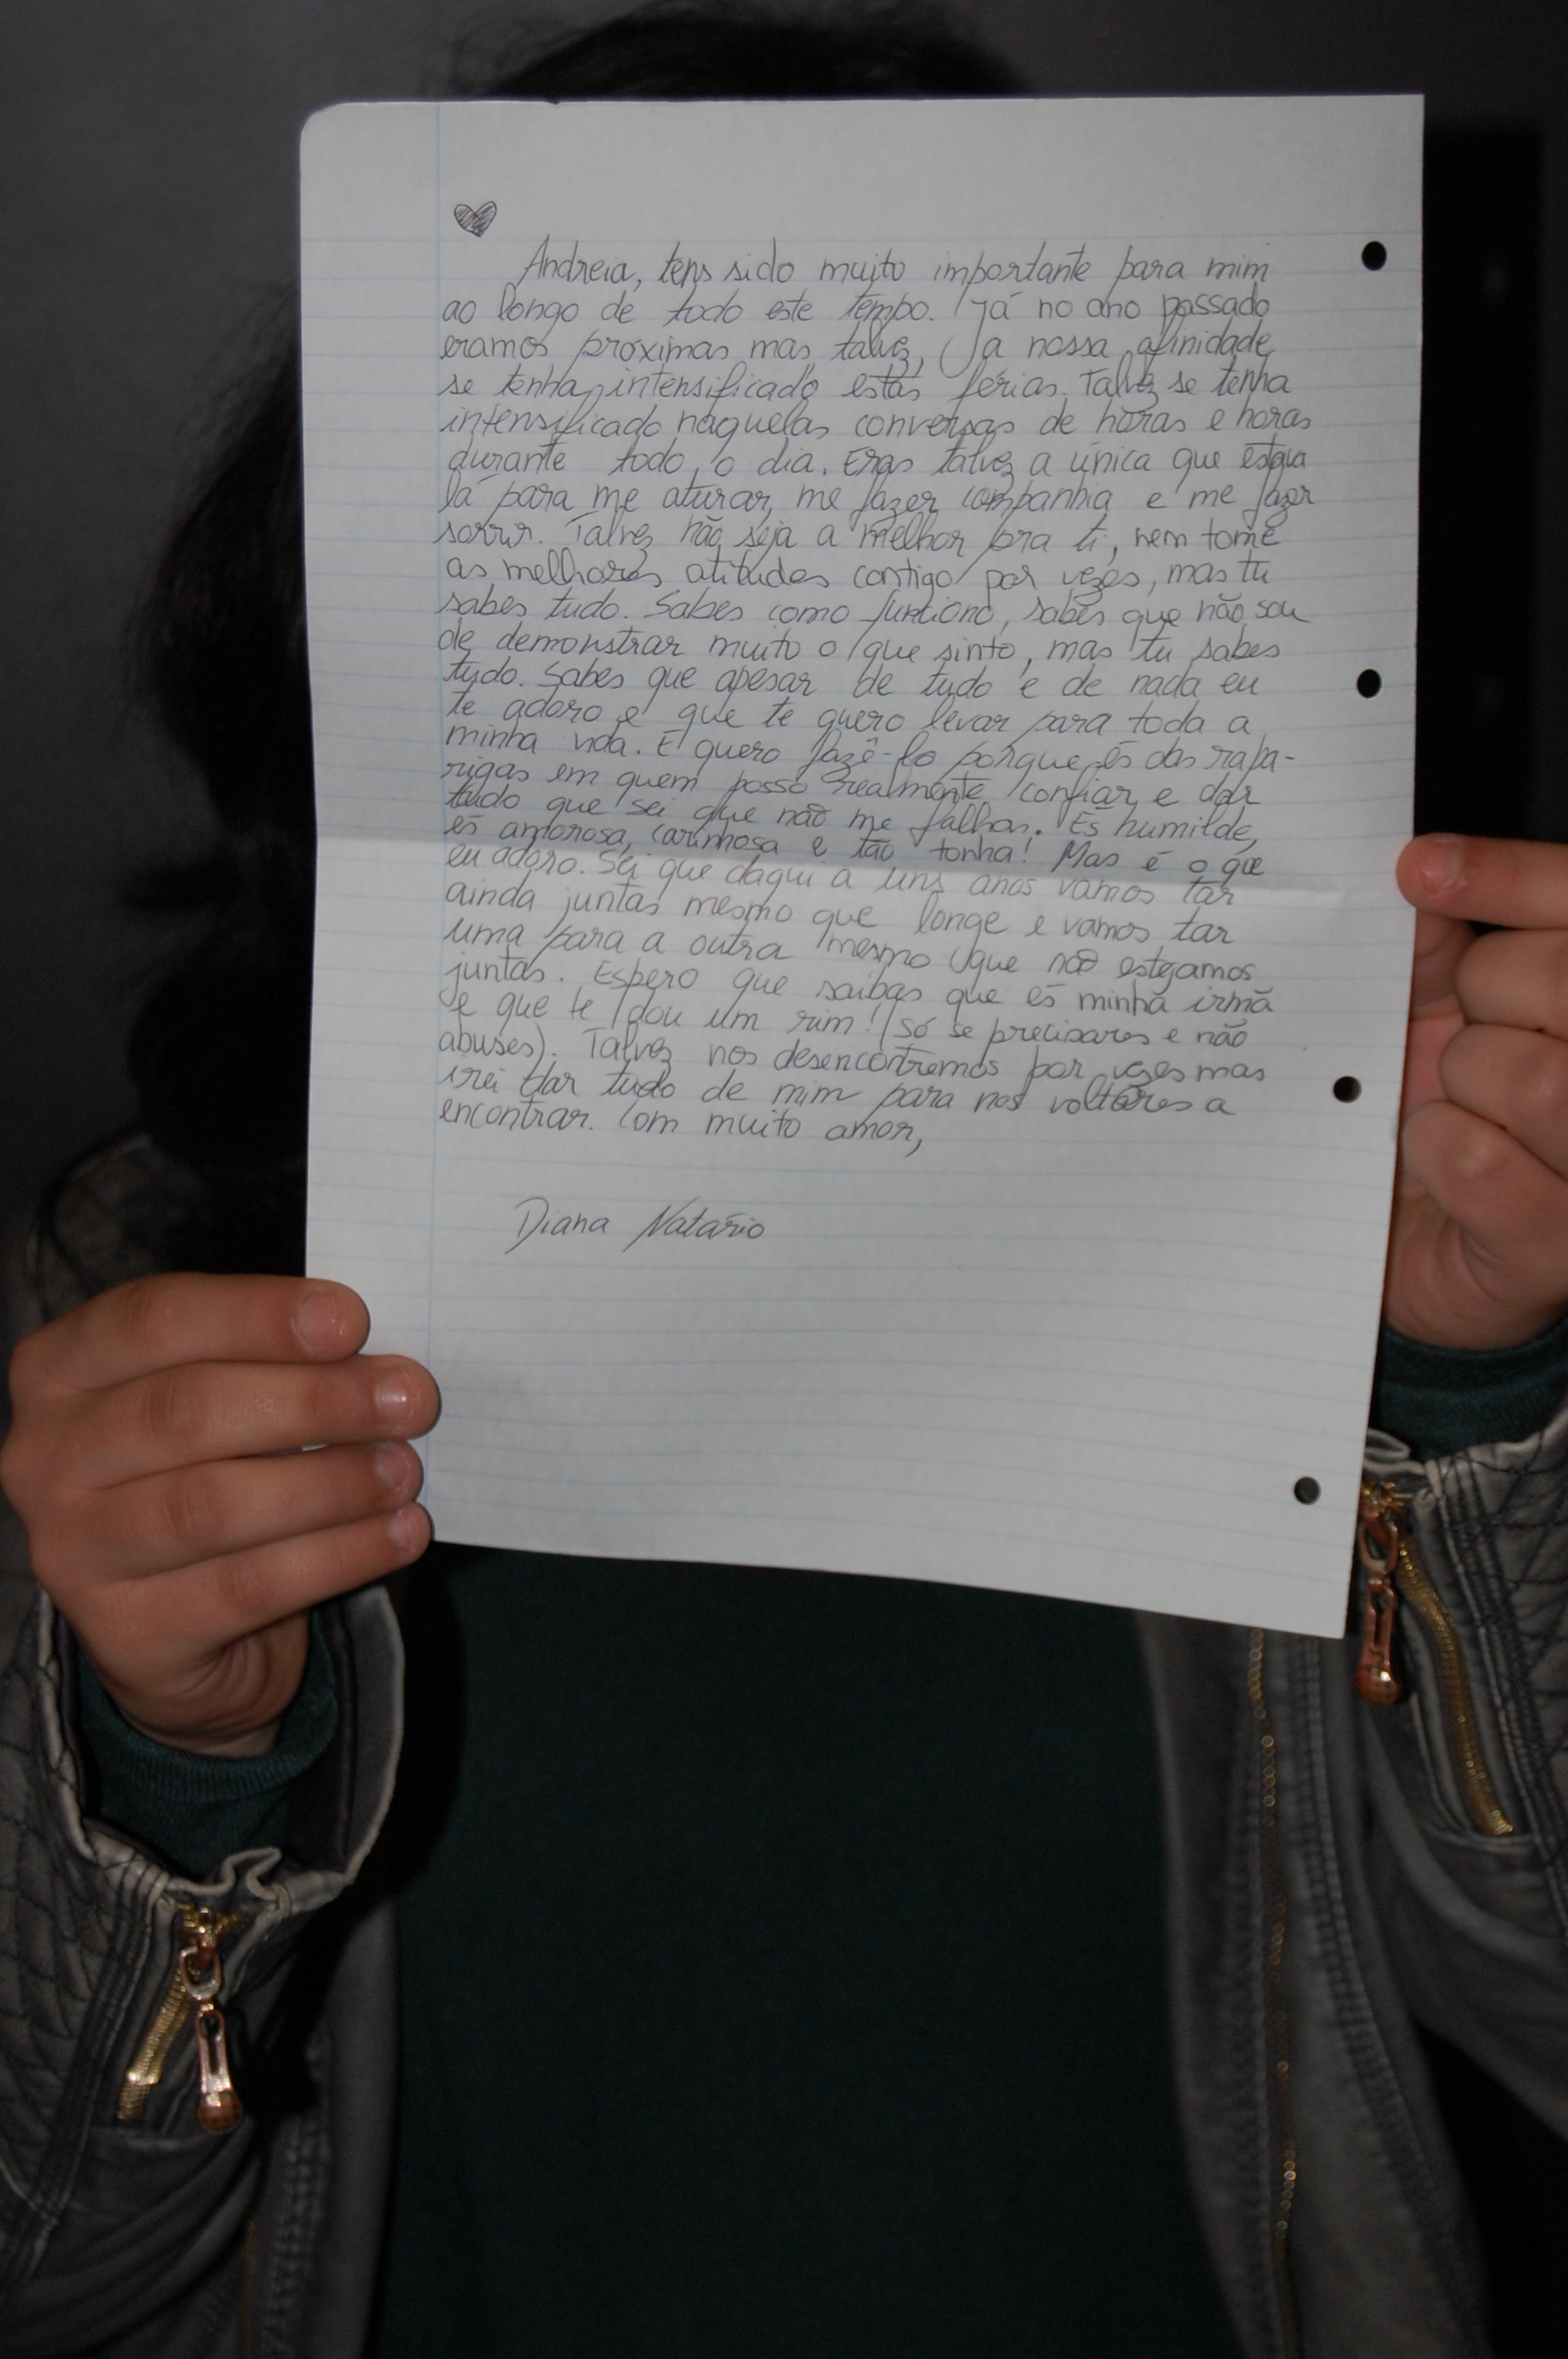 Andreia, tens sido muito importante para mim
ao longo de todo este tempo. Já no ano passado
eramos próximas mas talvez, a nossa afinidade
se tenha intensificado estas férias. Talvez se tenha
intensificado naquelas conversas de horas e horas
durante todo o dia. Eras talvez a única que estava
lá para me aturar, me fazer companhia e me fazer
sorrir. Talvez não seja a melhor pra ti, nem tome
as melhores atitudes contigo por vezes, mas tu
sabes tudo. Sabes como funciono, sabes que não sou
de demonstrar muito o que sinto, mas tu sabes
tudo. Sabes que apesar de tudo e de nada eu
te adoro e que te quero levar para toda a
minha vida. E quero fazê-lo porque és das rapa-
rigas em quem posso realmente confiar e dar
tudo que sei que não me falhas. És humilde,
és amorosa, carinhosa e tão tonha! Mas é o que
eu adoro. Sei que daqui a uns anos vamos tar
ainda juntas mesmo que longe e vamos tar
uma para a outra mesmo que não estejamos
juntas. Espero que saibas que és minha irmã
e que te dou um rim! (só se precisares e não
abuses). Talvez nos desencontremos por vezes mas
irei dar tudo de mim para nos voltares a
encontrar. Com muito amor,
Diana Natário